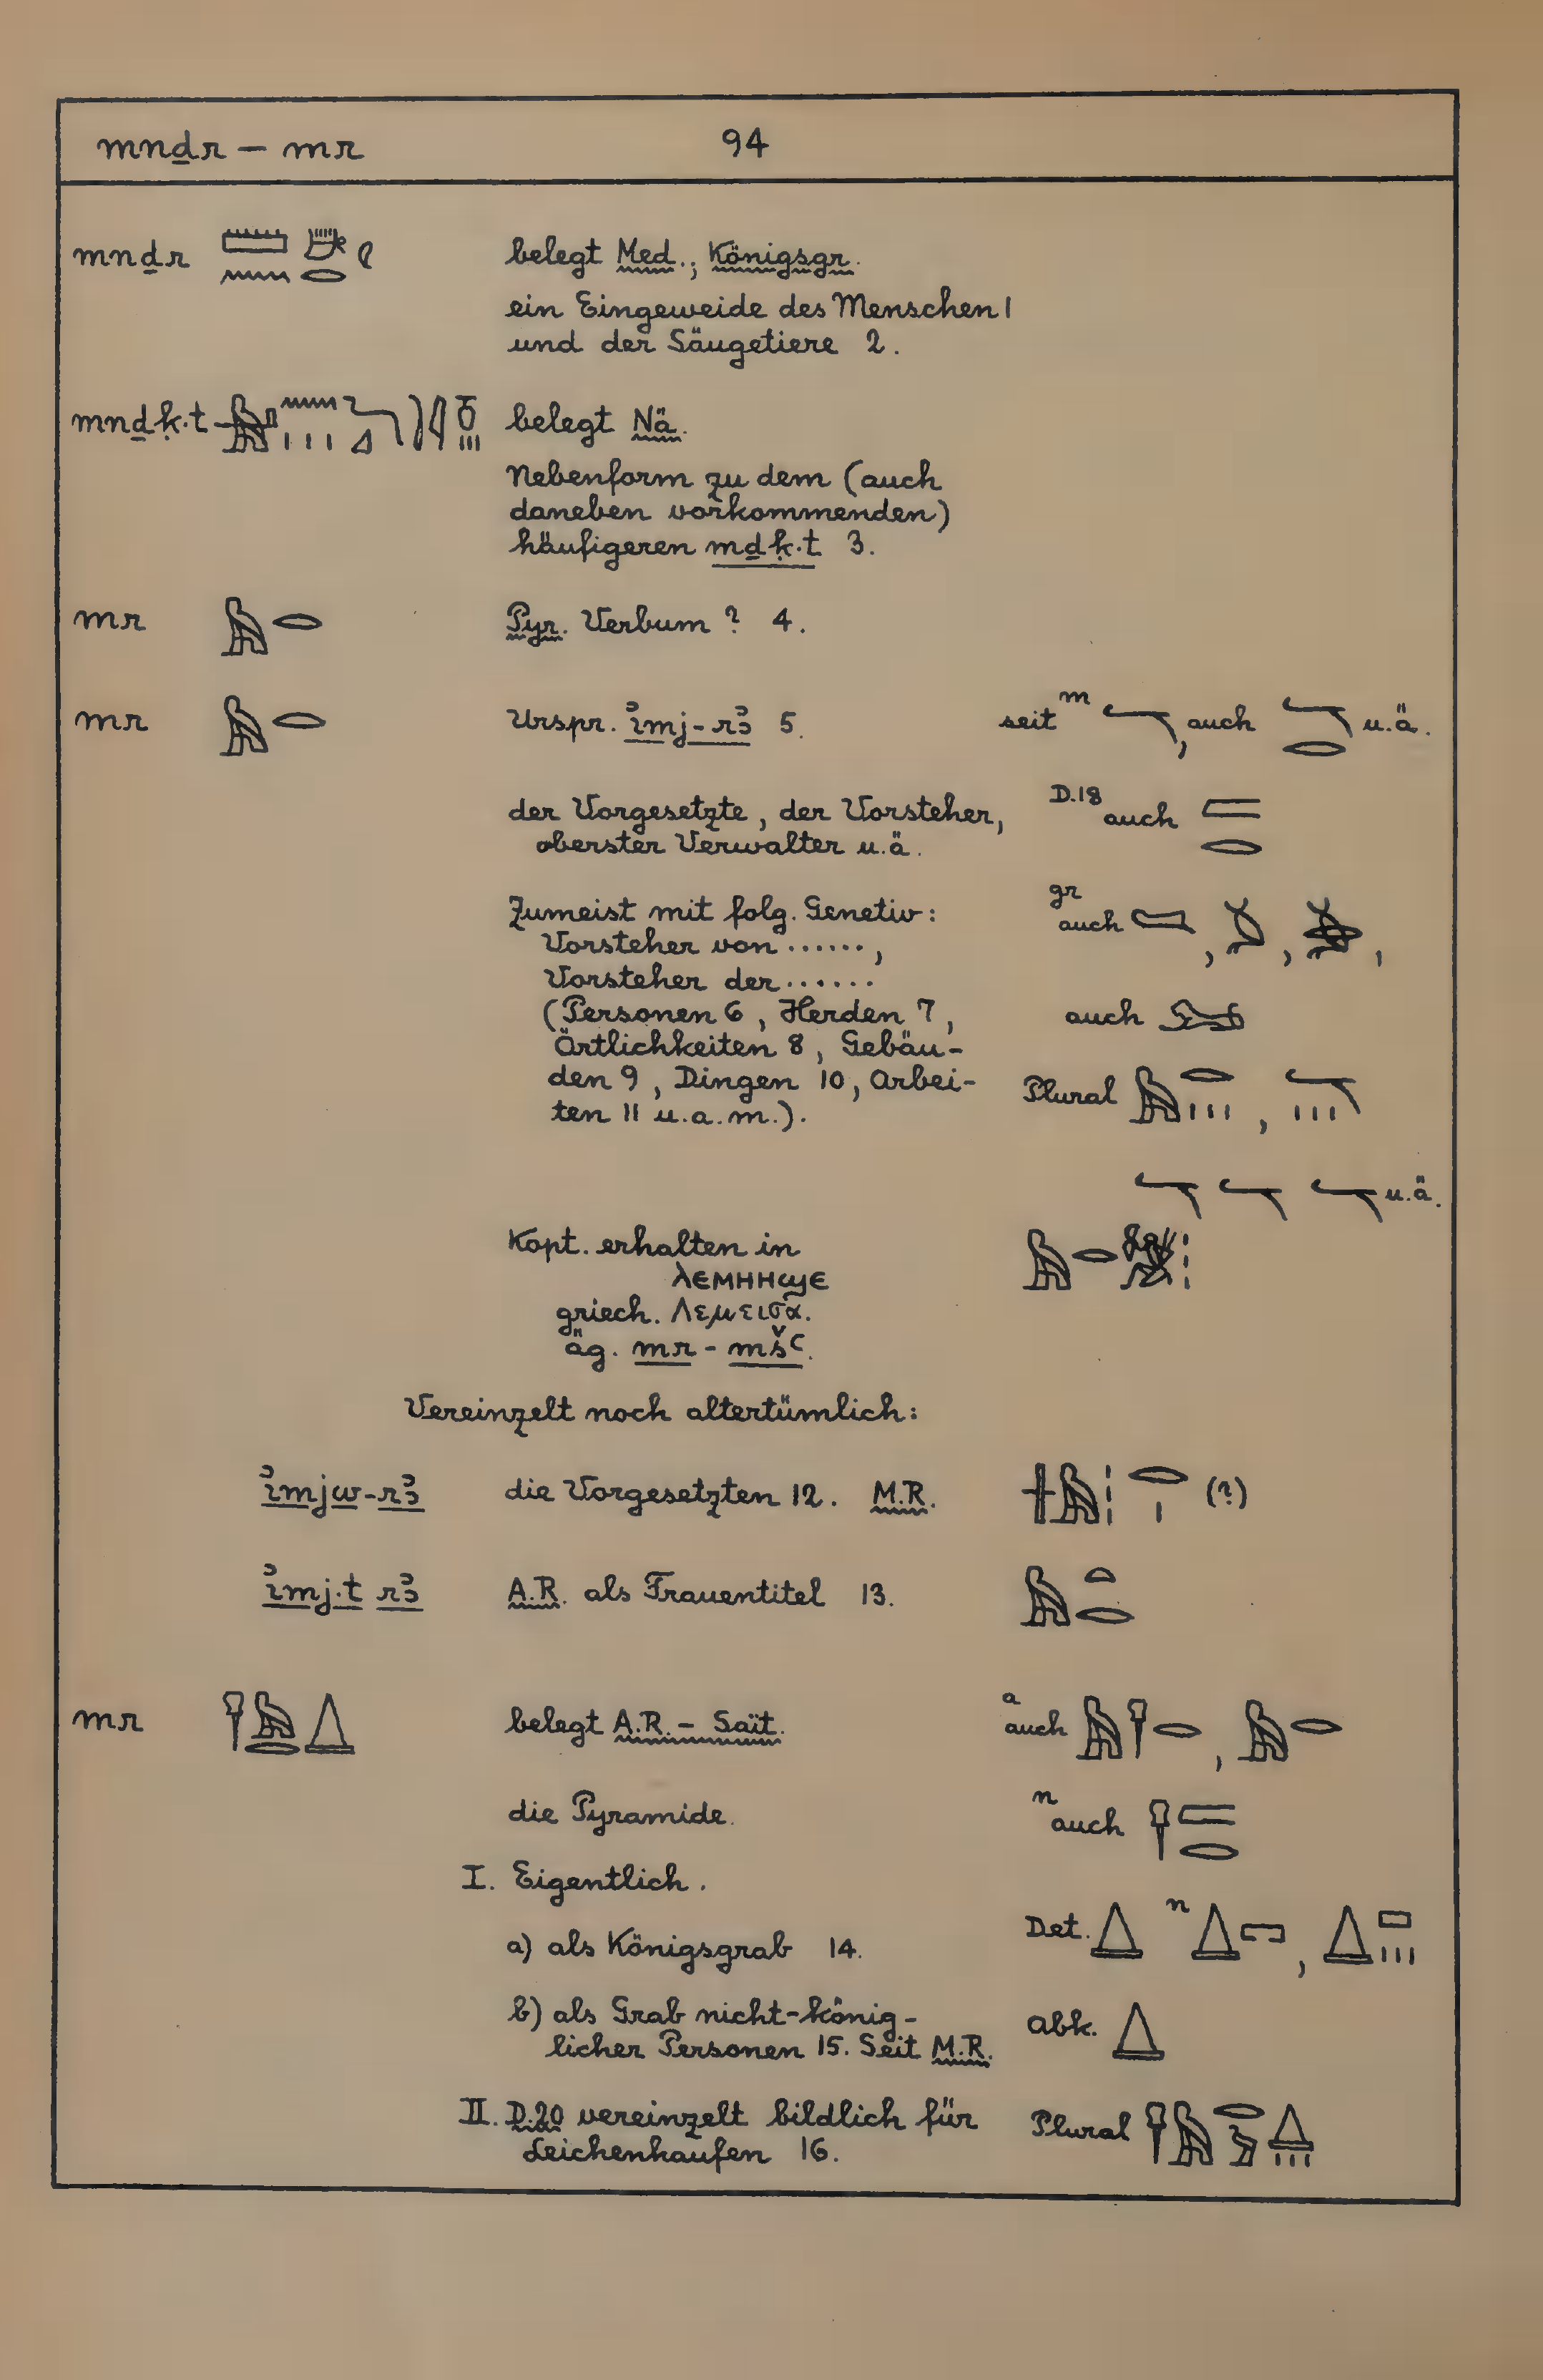 mnḏr – mr 94
mnḏr belegt Med.; Königsgr.
ein Eingeweide des Menschen 1
und der Säugetiere 2.
mnḏḳ.t belegt Nä.
Nebenform zu dem (auch
daneben vorkommenden)
häufigeren mḏḳ.t 3.
mr Pyr. Verbum? 4.
mr Urspr. ỉmj-rꜣ 5. seit m , auch u.ä.
der Vorgesetzte, der Vorsteher, D.18 auch
oberster Verwalter u.ä.
Zumeist mit folg. Genetiv: gr auch , , ,
Vorsteher von ......,
Vorsteher der ......
(Personen 6, Herden 7, auch
Örtlichkeiten 8, Gebäu-
den 9, Dingen 10, Arbei- Plural ,
ten 11 u.a.m.).
u.ä.
Kopt. erhalten in
ⲗⲉⲙⲏⲏϣⲉ
griech. Λεμεισα.
äg. mr-mšꜥ.
Vereinzelt noch altertümlich:
ỉmjw-rꜣ die Vorgesetzten 12. M.R. (?)
ỉmj.t rꜣ A.R. als Frauentitel 13.
mr belegt A.R. – Saït. a auch ,
die Pyramide. n auch
I. Eigentlich.
a) als Königsgrab 14. Det. n ,
b) als Grab nicht-könig- Abk.
licher Personen 15. Seit M.R.
II. D.20 vereinzelt bildlich für Plural
Leichenhaufen 16.